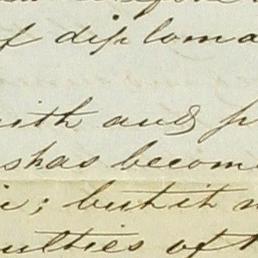 of diploma
with and p
has become
; but it
ulties of